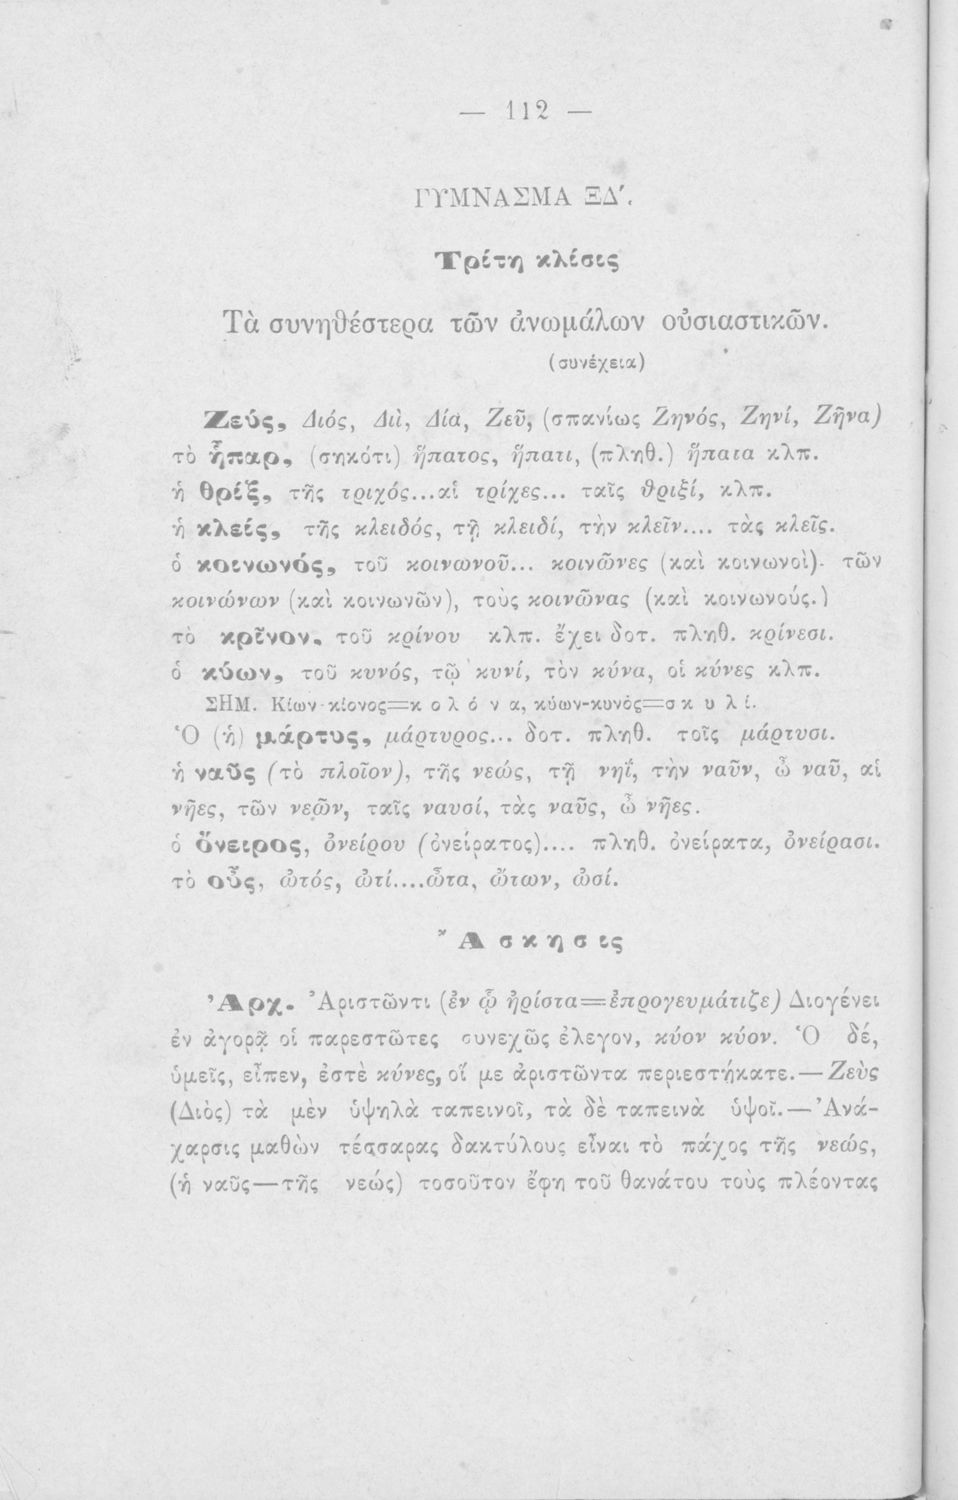 — 112 —
ΓΥΜΝΑΣΜΑ ΞΔʹ.
Τρίτη κλίσις
Τὰ συνηθέστερα τῶν ἀνωμάλων οὐσιαστικῶν.
(συνέχεια)
Ζεύς, Διός, Διῒ, Δία, Ζεῦ, (σπανίως Ζηνός, Ζηνί, Ζῆνα)
τὸ ἧπαρ, (σηκότι) ἥπατος, ἥπατι, (πληθ.) ἥπατα κλπ.
ἡ θρίξ, τῆς τριχός...αἱ τρίχες... ταῖς θριξί, κλπ.
ἡ κλείς, τῆς κλειδός, τῇ κλειδί, τὴν κλεῖν.... τὰς κλεῖς.
ὁ κοινωνός, τοῦ κοινωνοῦ... κοινῶνες (καὶ κοινωνοὶ). τῶν
κοινώνων (καὶ κοινωνῶν), τοὺς κοινῶνας (καὶ κοινωνούς.)
τὸ κρῖνον, τοῦ κρίνου κλπ. ἔχει δοτ. πληθ. κρίνεσι.
ὁ κύων, τοῦ κυνός, τῷ κυνί, τὸν κύνα, οἱ κύνες κλπ.
ΣΗΜ. Κίων-κίονος=κ ο λ ό ν α, κύων-κυνός=σ κ υ λ ί.
Ὁ (ἡ) μάρτυς, μάρτυρος... δοτ. πληθ. τοῖς μάρτυσι.
ἡ ναῦς (τὸ πλοῖον), τῆς νεώς, τῇ νηΐ, τὴν ναῦν, ὦ ναῦ, αἱ
νῆες, τῶν νεῶν, ταῖς ναυσί, τὰς ναῦς, ὦ νῆες.
ὁ ὄνειρος, ὀνείρου (ὀνείρατος).... πληθ. ὀνείρατα, ὀνείρασι.
τὸ οὖς, ὠτός, ὠτί....ὦτα, ὤτων, ὠσί.
Ἄ σ κ η σ ις
Ἀρχ. Ἀριστῶντι (ἐν ᾧ ἠρίστα=ἐπρογευμάτιζε) Διογένει
ἐν ἀγορᾷ οἱ παρεστῶτες συνεχῶς ἐλεγον, κύον κύον. Ὁ δέ,
ὑμεῖς, εἶπεν, ἐστὲ κύνες, οἵ με ἀριστῶντα περιεστήκατε.—Ζεὺς
(Διὸς) τὰ μὲν ὑψηλὰ ταπεινοῖ, τὰ δὲ ταπεινὰ ὑψοῖ.—Ἀνά-
χαρσις μαθὼν τέσσαρας δακτύλους εἶναι τὸ πάχος τῆς νεώς,
(ἡ ναῦς—τῆς νεώς) τοσοῦτον ἔφη τοῦ θανάτου τοὺς πλέοντας